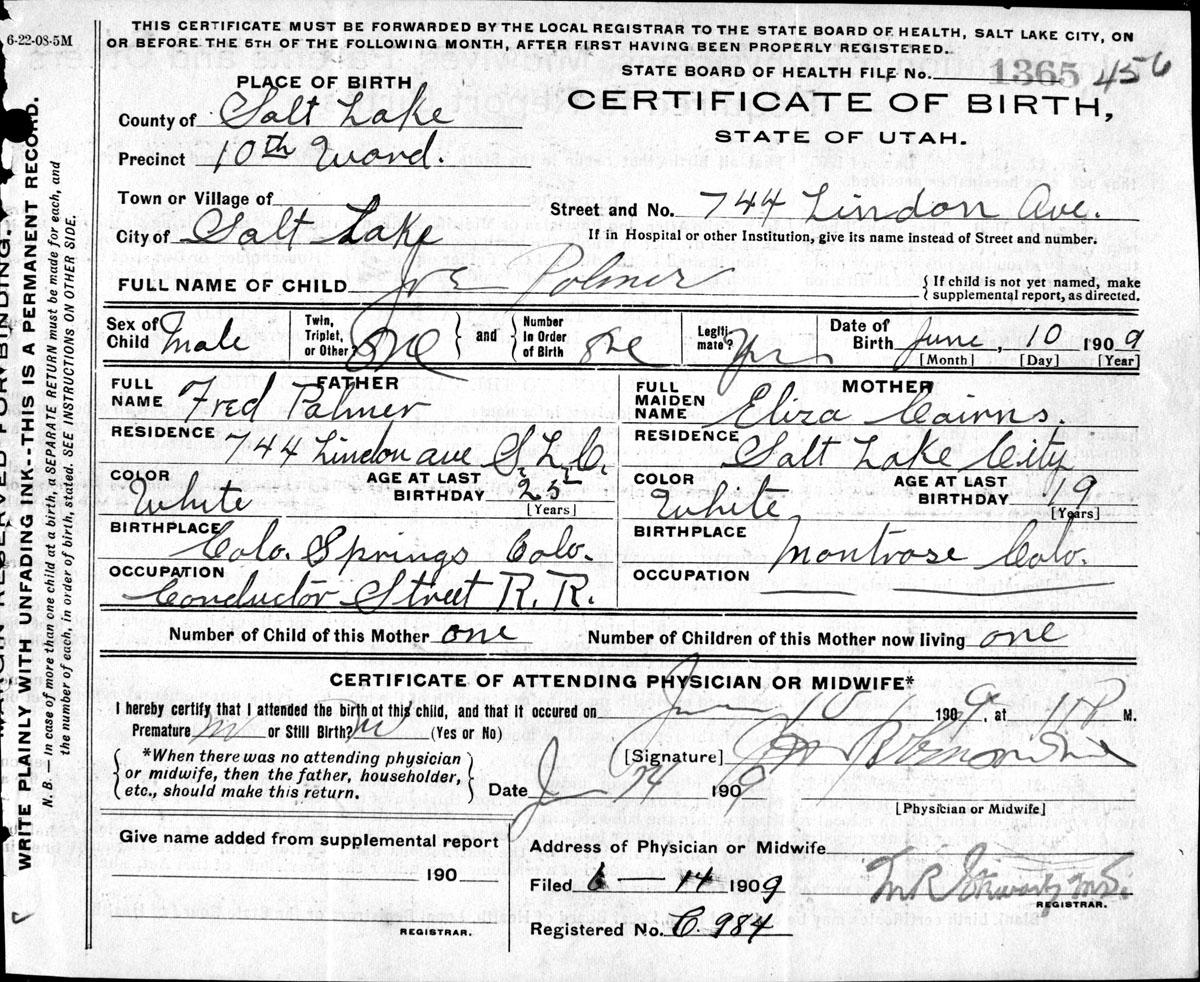 6-22-08-5M
THIS CERTIFICATE MUST BE FORWARDED BY THE LOCAL REGISTRAR TO THE STATE BOARD OF HEALTH, SALT LAKE CITY, ON
OR BEFORE THE 5TH OF THE FOLLOWING MONTH, AFTER FIRST HAVING BEEN PROPERLY REGISTERED.
STATE BOARD OF HEALTH FILE No. 1365 456
CERTIFICATE OF BIRTH,
STATE OF UTAH.
PLACE OF BIRTH
County of Salt Lake
Precinct 10th Ward.
Town or Village of
City of Salt Lake
Street and No. 744 Lindon Ave.
If in Hospital or other Institution, give its name instead of Street and number.
FULL NAME OF CHILD
{ If child is not yet named, make
supplemental report, as directed.
Sex of Child Male
Twin, Triplet, or Other? One } and { Number In Order of Birth one
Legiti- mate? Yes
Date of Birth June, 10 1909
[Month] [Day] [Year]
FATHER
FULL NAME Fred Palmer
RESIDENCE 744 Lindon ave S.L.C.
COLOR White
AGE AT LAST BIRTHDAY 25
[Years]
BIRTHPLACE Colo. Springs Colo.
OCCUPATION Conductor Street R.R.
MOTHER
FULL MAIDEN NAME Eliza Cairns.
RESIDENCE Salt Lake City
COLOR White
AGE AT LAST BIRTHDAY 19
[Years]
BIRTHPLACE Montrose Colo.
OCCUPATION
Number of Child of this Mother one
Number of Children of this Mother now living one
CERTIFICATE OF ATTENDING PHYSICIAN OR MIDWIFE*
I hereby certify that I attended the birth of this child, and that it occured on June 10 1909, at M.
Premature or Still Birth? (Yes or No)
{ *When there was no attending physician
or midwife, then the father, householder,
etc., should make this return. }
[Signature]
Date 14 1909
[Physician or Midwife]
Give name added from supplemental report
190
REGISTRAR.
Address of Physician or Midwife
Filed 6 — 14 1909
REGISTRAR.
Registered No. C. 984
WRITE PLAINLY WITH UNFADING INK--THIS IS A PERMANENT RECORD.
N. B.—In case of more than one child at a birth, a SEPARATE RETURN must be made for each, and
the number of each, in order of birth, stated. SEE INSTRUCTIONS ON OTHER SIDE.